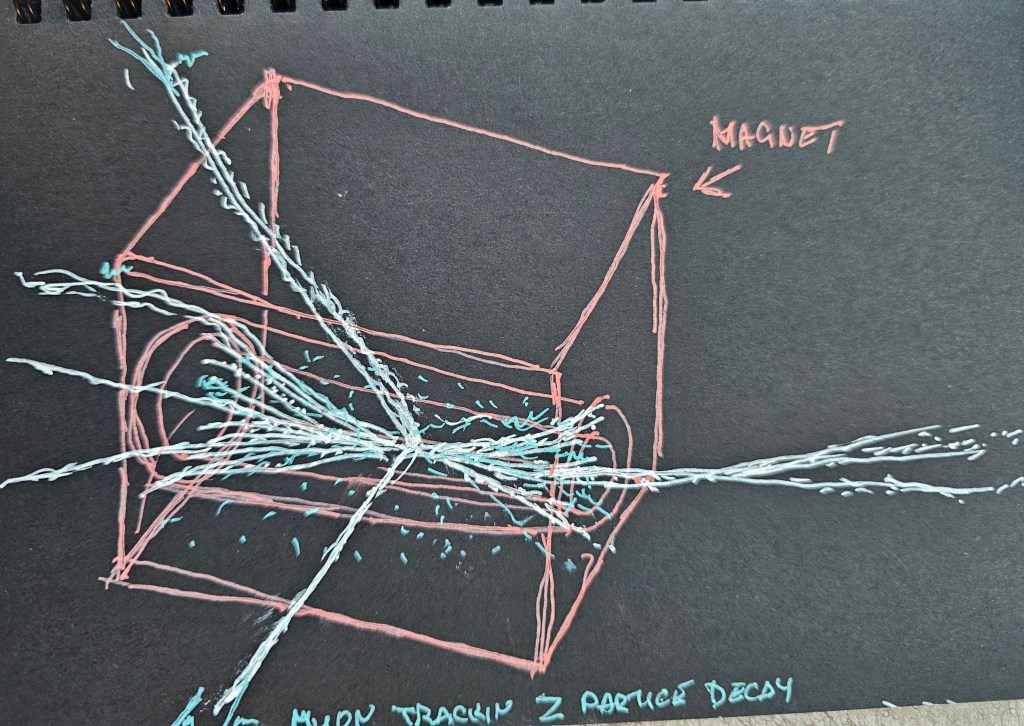 MAGNET
MUON TRACKIN Z PARTICE DECAY